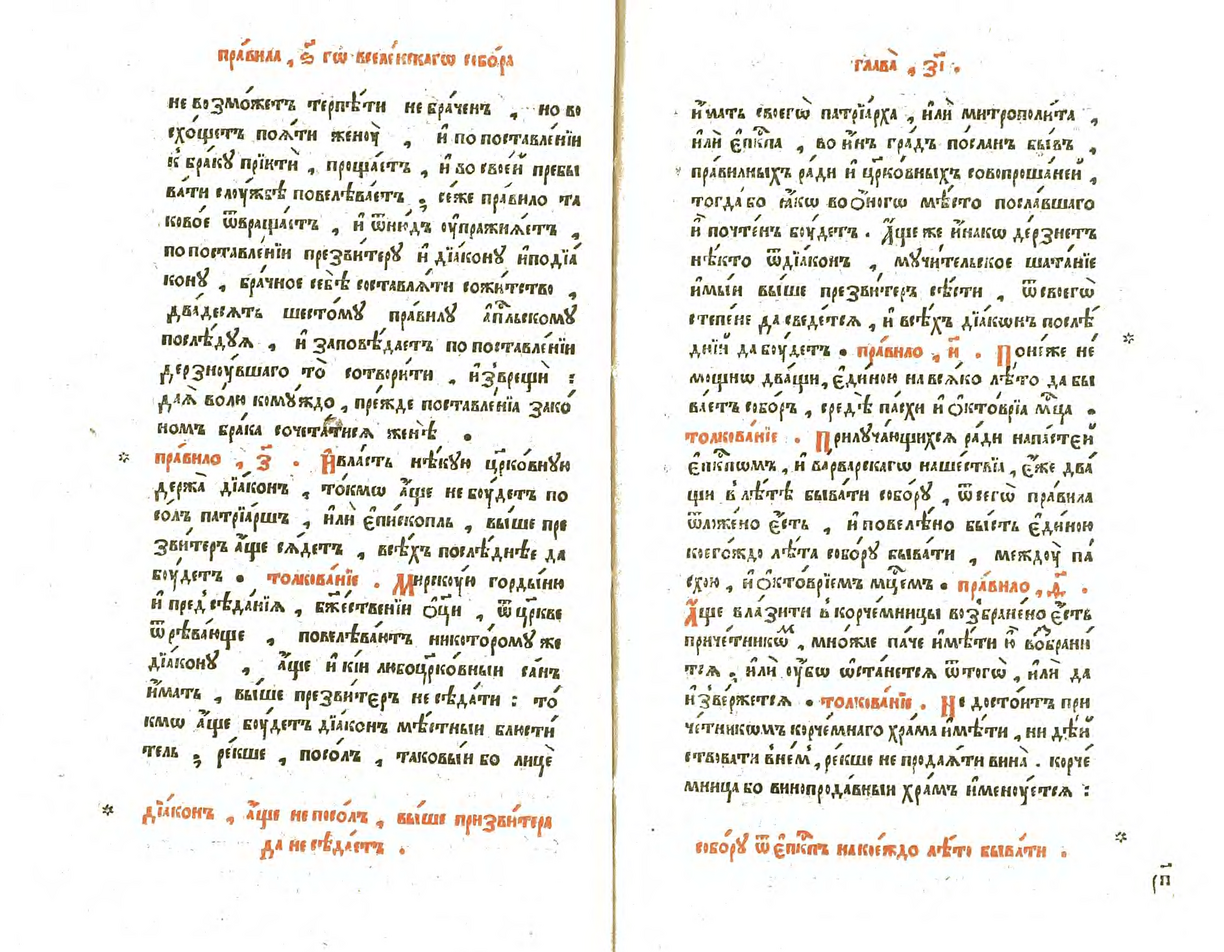 пра́вила , ѕ҃ гѡ вселе́нскагѡ собо́ра
не возмо́жетъ терпѣ́ти не бра́ченъ , но во
схо́щетъ поѧ́ти женоу̀ , и҆ по поставле́нїи
к̾ бра́ку прїитѝ , проща́етъ , и҆ во свое́й пребы
ва́ти слоу́жбѣ повелѣва́етъ ; се́же пра́вило та
ково́е ѿвраща́етъ , и҆ ѿню́дъ оу҆пражнѧ́етъ ,
по поставле́нїи презви́теру и҆ дїа́кону и҆подїа́
кону , бра́чное себѣ̀ составлѧ́ти сожи́тство ,
два́десѧть шесто́му пра́вилу а҆пⷭ҇льскому
послѣ́дуѧ , и҆ заповѣ́даетъ по поставле́нїи
дерзноу́вшаго то̀ сотвори́ти , и҆зврещѝ :
даѧ̀ во́лю комуждо , пре́жде поставле́нїѧ зако́
номъ бра́ка сочета́тисѧ женѣ̀ .
пра́вило , з҃ . И҆ вла́сть нѣ́кую цр҃ко́вную
держа̀ дїа́конъ , то́кмѡ а҆́ще не боу́детъ по
со́лъ патрїа́ршъ , и҆лѝ є҆пи́скопль , вы́ше пре
зви́теръ а҆́ще сѧ́детъ , всѣ́хъ послѣ́днѣе да
боу́детъ . толкова́нїе . Мирскоу́ю горды́ню
и҆ пред̾сѣда́нїѧ , бж҃е́ственїи ѻ҆ц҃ы , ѿ цр҃кве
ѿрѣва́юще , повелѣва́ютъ никото́рому же
дїа́кону , а҆́ще и҆ кі́и любоцр҃ко́вныи са́нъ
и҆́мать , вы́ше презви́теръ не сѣда́ти : то́
кмѡ а҆́ще боу́детъ дїа́конъ мѣ́стныи блюсти́
тель , ре́кше , посо́лъ , таковы́и бо лицѐ
дїа́конъ , а҆́ще не посо́лъ , вы́ше призви́тера
да не сѣда́етъ .
глава̀ , з҃і .
и҆́мать своегѡ̀ патрїа́рха , и҆лѝ митрополи́та ,
и҆лѝ є҆пⷭ҇кпа , во и҆́нъ гра́дъ по́сланъ бы́въ ,
пра́вилныхъ ра́ди и҆ цр҃ко́вныхъ совопроша́ней ,
тогда́ бо ꙗ҆́кѡ во ѻ҆́ногѡ мѣ́сто посла́вшаго
и҆ почте́нъ боу́детъ . А҆́ще же и҆на́кѡ де́рзнетъ
нѣ́кто ѿ дїа́конъ , мучи́тельское шата́нїе
и҆мы́и вы́ше презви́теръ сѣ́сти , ѿ своегѡ̀
степе́не да сведе́тсѧ , и҆ всѣ́хъ дїа́кѡнъ послѣ́
днїй да боу́детъ . пра́вило , и҃ . Поне́же не́
мощнѡ два́щи, є҆ди́ною на всѧ́ко лѣ́то да бы
ва́етъ собо́ръ , средѣ̀ па́схи и҆ ѻ҆ктѡ́врїа мⷭ҇ца .
толкова́нїе . Прилуча́ющихсѧ ра́ди напа́стей
є҆пⷭ҇кпѡмъ , и҆ ва́рварскагѡ наше́ствїа , є҆́же два́
щи в̾ лѣ́тѣ быва́ти собо́ру , ѿ сегѡ̀ пра́вила
ѿло́жено є҆́сть , и҆ повелѣ́но бы́сть є҆ди́ною
коегѡ́ждо лѣ́та собо́ру быва́ти , междоу̀ па́
схою , и҆ ѻ҆ктѡ́врїемъ мⷭ҇цемъ . пра́вило , ѳ҃ .
А҆́ще влази́ти в̾ корче́мницы возбране́но є҆́сть
приче́тникѡⷨ , мно́жае па́че и҆мѣ́ти ю҆̀ во́збрани
тсѧ , и҆лѝ оу҆́бѡ ѡ҆ста́нетсѧ ѿ тогѡ̀ , и҆лѝ да
и҆зве́ржетсѧ . толкова́нїе . Не досто́итъ при
че́тникѡмъ корче́мнаго хра́ма и҆мѣ́ти , ни дѣ́й
ствовати в̾не́м̾ , ре́кше не продаѧ́ти вина̀ . корче́
мница бо винопрода́вныи хра́мъ и҆менꙋ́етсѧ :
собо́ру ѿ є҆пⷭ҇кпъ на кое́ждо лѣ́то быва́ти .